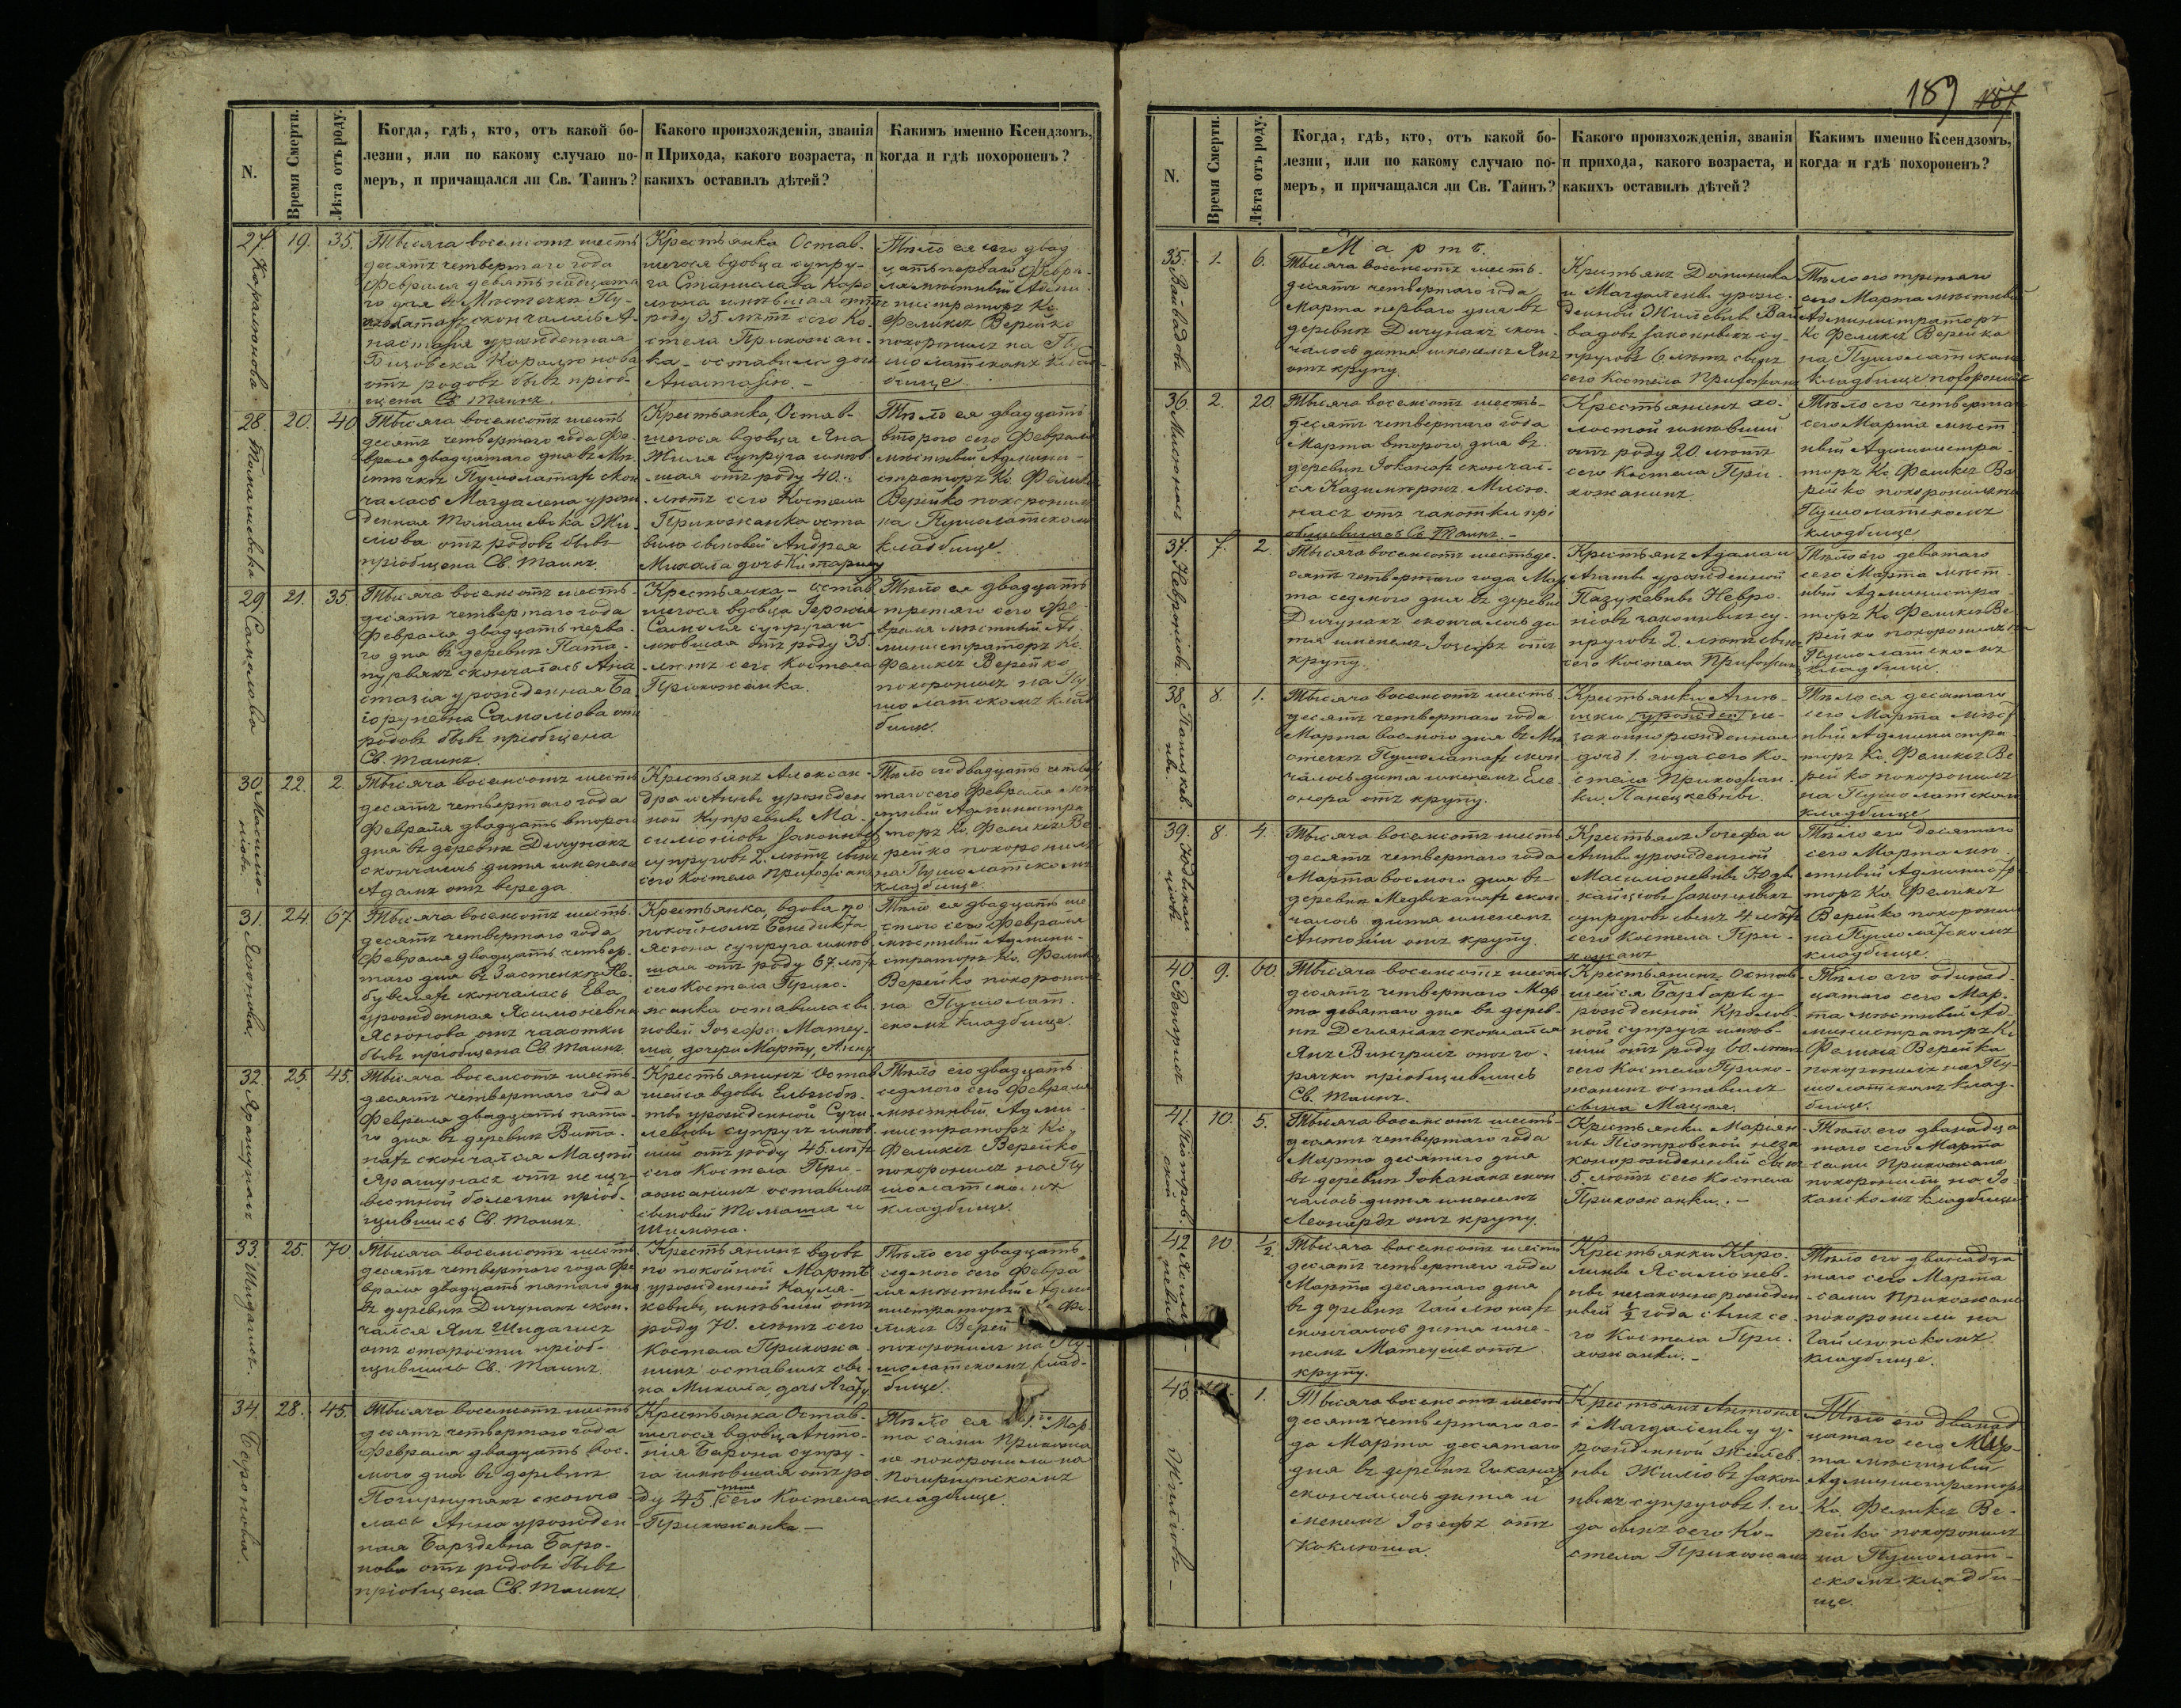 189 187
N.
Время Смерти.
Лѣта отъ роду.
Когда, гдѣ, кто, отъ какой бо-
лезни, или по какому случаю по-
меръ, и причащался ли Св. Таинъ?
Какого произхожденія, званія
и Прихода, какого возраста, и
какихъ оставилъ дѣтей?
Какимъ именно Ксендзомъ,
когда и гдѣ похороненъ?
27. 19. 35.
Тысяча восемсотъ шесть
десятъ четвертаго года
Февраля девятьнадцата
го дня въ Мѣстечкѣ Пу-
шолатахъ скончалась А-
настазія урожденная
отъ родовъ бывъ пріоб-
щена Св. Таинъ.
Крестьянка Остав-
шегося вдовца супру-
га Станислава Каро
люна имѣвшая отъ
роду 35. лѣтъ сего Ко-
стела Прихожан-
ка - оставила дочь
Анастазію. -
Тѣло ея сего двад
цать перваго Февра-
ля мѣстный Адми-
нистраторъ Кс.
Феликсъ Верейко
похоронилъ на Пу
шолатскомъ клад-
бище.
28. 20. 40
Томашевска
Тысяча восемсотъ шесть
десятъ четвертаго года Фе-
враля двадцатаго дня въ Мѣ-
стечкѣ Пушолатахъ скон
чалась Магдалена урож
денная Томашевска Жи-
лова отъ родовъ бывъ
пріобщена Св. Таинъ.
Крестьянка, Остав-
шегося вдовца Яна
Жиля супруга имѣв-
шая отъ роду 40.
лѣтъ сего Костела
Прихожанка оста
вила сыновей Андрея
Михала дочь Катарину
Тѣло ея двадцать
второго сего Февраля
мѣстный Админи-
страторъ Кс. Феликсъ
Верейко похоронилъ
на Пушолатскомъ
кладбище.
29. 21. 35.
Самолова
Тысяча восемсотъ шесть-
десятъ четвертаго года
Февраля двадцать перва-
го дня въ деревнѣ Пата-
пурвянъ скончалась Ана
стазія урожденная Ба
Самолова отъ
родовъ бывъ пріобщена
Св. Таинъ.
Крестьянка - остав
шегося вдовца
Самоля супруга и-
мѣвшая отъ роду 35
лѣтъ сего Костела
Прихожанка.
Тѣло ея двадцать
третяго сего Фе-
враля мѣстный Ад-
министраторъ Кс.
Феликсъ Верейко
похоронилъ на Пу
шолатскомъ клад
бище.
30. 22. 2.
Тысяча восемсотъ шесть
десятъ четвертаго года
Февраля двадцать второго
дня въ деревнѣ Дичунахъ
скончалось дитя именемъ
Адамъ отъ вереда
Крестьянъ Алексан-
дра и Анны урожден
ной Купревны Ма-
силюновъ законныхъ
супруговъ 2. лѣтъ сынъ
сего Костела Прихожанъ
Тѣло его двадцать четвер
таго сего Февраля мѣ
стный Администра
торъ Кс. Феликсъ Ве
рейко похоронилъ
на Пушолатскомъ
кладбище.
31. 24. 67
Ясюнова
Тысяча восемсотъ шесть-
десятъ четвертаго года
Февраля двадцать четвер-
таго дня въ Застенкѣ
скончалась Ева
урожденная Ясилюневна
Ясюнова отъ чахотки
бывъ пріобщена Св. Таинъ.
Крестьянка, вдова по
покойномъ Бенедикта
Ясюна супруга имѣв
шая отъ роду 67. лѣтъ
сего Костела Прихо-
жанка оставила сы
новей Іозефа, Матеу-
ша, дочери Марту, Анну
Тѣло ея двадцать ше
стаго сего Февраля
мѣстный Админи-
страторъ Кс. Феликсъ
Верейко похоронилъ
на Пушолат-
скомъ кладбище.
32. 25. 45.
Ярашунасъ
Тысяча восемсотъ шесть-
десятъ четвертаго года
Февраля двадцать пята-
го дня въ деревнѣ Вита-
нахъ скончался Мацѣй
Ярашунасъ отъ не из-
вестной болезни пріоб-
щившись Св. Таинъ.
Крестьянинъ Остав
шейся вдовы Ельжбѣ-
ты урожденной Сучи-
левны супругъ имѣв
шій отъ роду 45. лѣтъ
сего Костела При-
хожанинъ оставилъ
сыновей Томаша и
Шимона.
Тѣло его двадцать-
седмого сего Февраля
мѣстный Адми-
нистраторъ Кс.
Феликсъ Верейко
похоронилъ на Пу
шолатскомъ
кладбище.
33. 25. 70
Шидагисъ.
Тысяча восемсотъ шесть
десятъ четвертаго года Фе
враля двадцать пятаго дня
въ деревнѣ Дичунахъ скон-
чался Янъ Шидагисъ
отъ старости пріоб-
щившись Св. Таинъ.
Крестьянинъ вдовъ
по покойной Мартѣ
урожденной
имѣвшій отъ
роду 70. лѣтъ сего
Костела Прихожа-
нинъ оставилъ сы-
на Михала, дочь Агату
Тѣло его двадцать-
седмого сего Февра
ля мѣстный Адми
нистраторъ Кс. Фе-
ликсъ Верей
похоронилъ на Пу-
шолатскомъ клад-
бище.
34. 28. 45.
Баронова.
Тысяча восемсотъ шесть
десятъ четвертаго года
Февраля двадцать вос-
мого дня въ деревнѣ
сконча-
лась Анна урожден
ная Барздевна Баро-
нова отъ родовъ бывъ
пріобщена Св. Таинъ.
Крестьянка Остав-
шегося вдовца Анто-
нія Барона супру-
га имѣвшая отъ ро
ду 45 лѣтъ сего Костела
Прихожанка. -
Тѣло ея 1.го Мар
та сами Прихожа
не похоронили на
кладбище.
N.
Время Смерти.
Лѣта отъ роду.
Когда, гдѣ, кто, отъ какой бо-
лезни, или по какому случаю по-
меръ, и причащался ли Св. Таинъ?
Какого произхожденія, званія
и прихода, какого возраста, и
какихъ оставилъ дѣтей?
Какимъ именно Ксендзомъ,
когда и гдѣ похороненъ?
Мартъ.
35. 1. 6.
Вайвадовъ
Тысяча восемсотъ шесть-
десятъ четвертаго года
Марта перваго дня въ
деревнѣ Дичунахъ скон-
чалось дитя именемъ Янъ
отъ крупу.
Крестьянъ Доминика
и Магдалены урож-
денной Жилевны Вай
вадовъ законныхъ су-
пруговъ 6 лѣтъ сынъ
сего Костела Прихожанъ
Тѣло его третяго
сего Марта мѣстный
Администраторъ
Кс Феликсъ Верейко
на Пушолатскомъ
кладбище похоронилъ
36. 2. 20.
Тысяча восемсотъ шесть-
десятъ четвертаго года
Марта второго дня въ
деревнѣ Іоканахъ скончал-
ся Казимѣръ
отъ чахотки прі
общившись Св. Таинъ. -
Крестьянинъ хо-
лостой имѣвшій
отъ роду 20 лѣтъ
сего Костела При-
хожанинъ
Тѣло его четвертаго
сего Марта мѣст-
ный Администра-
торъ Кс Феликсъ Ве
рейко похоронилъ на
Пушолатскомъ
кладбище
37. 7. 2.
Тысяча восемсотъ шестьде-
сятъ четвертаго года Мар
та седмого дня въ деревнѣ
Дичунахъ скончалось ди
тя именемъ Іозефъ отъ
крупу.
Крестьянъ Адама и
Агаты урожденной
Пазукевны Невро-
ніовъ законныхъ су-
пруговъ 2. лѣтъ сынъ
сего Костела Прихожанъ
Тѣло его девятаго
сего Марта мѣст-
ный Администра-
торъ Кс Феликсъ Ве-
рейко похоронилъ на
Пушолатскомъ
кладбище.
38. 8. 1.
Тысяча восемсотъ шесть
десятъ четвертаго года
Марта восмого дня въ Мѣ
стечкѣ Пушолатахъ скон-
чалось дитя именемъ Еле-
онора отъ крупу.
Крестьянки Агнѣ-
шки (урожден) не-
законнорожденная
дочь 1. года сего Ко-
стела Прихожан-
ки Панецкевны.
Тѣло ея десятаго
сего Марта мѣст
ный Администра-
торъ Кс. Феликсъ Ве
рейко похоронилъ
на Пушолатскомъ
кладбище
39. 8. 4.
Тысяча восемсотъ шесть
десятъ четвертаго года
Марта восмого дня въ
деревнѣ Медвѣкатахъ скон
чалось дитя именемъ
Антоній отъ крупу.
Крестьянъ Іозефа и
Анны урожденной
Масилюневны Юдви-
законныхъ
супруговъ сынъ 4 лѣтъ
сего Костела При-
хожанъ
Тѣло его десятаго
сего Марта мѣ
стный Администра
торъ Кс. Феликсъ
Верейко похоронилъ
на Пушолатскомъ
кладбище.
40. 9. 60.
Тысяча восемсотъ шесть
десятъ четвертаго Мар
та девятаго дня въ дерев-
нѣ скончался
Янъ Венгрисъ отъ го-
рячки пріобщившись
Св. Таинъ.
Крестьянинъ Остав-
шейся Барбары у-
рожденной
супругъ имѣв-
шій отъ роду 60 лѣтъ
сего Костела Прихо-
жанинъ оставилъ
сына Мацѣя.
Тѣло его одинад-
цатаго сего Мар-
та мѣстный Ад-
министраторъ Кс
Феликсъ Верейко
похоронилъ на Пу-
шолатскомъ клад-
бище.
41. 10. 5.
Тысяча восемсотъ шесть-
десятъ четвертаго года
Марта десятаго дня
въ деревнѣ Іоканахъ скон
чалось дитя именемъ
Леонардъ отъ крупу.
Крестьянки Маріан
ны Піотровской неза
коннорожденный сынъ
5. лѣтъ сего Костела
Прихожанки. -
Тѣло его дванадца
таго сего Марта
сами Прихожане
похоронили на Іо
канскомъ кладбище
42. 10. ½.
Тысяча восемсотъ шесть
десятъ четвертаго года
Марта десятаго дня
въ деревнѣ Гайлюнахъ
скончалось дитя име-
немъ Матеушъ отъ
крупу.
Крестьянки Каро-
лины Ясилюнев-
ны незаконнорожден
ный ½ года сынъ се-
го Костела При-
хожанки. -
Тѣло его дванадца
таго сего Марта
сами Прихожане
похоронили на
Гайлюнскомъ
кладбище.
43. 1.
Жиліовъ
Тысяча восемсотъ шесть
десятъ четвертаго го-
да Марта десятаго
дня въ деревнѣ
скончалось дитя и
менемъ Іозефъ отъ
коклюша.
Крестьянъ Антонія
і Магдалены у-
рожденной
Жиліовъ закон
ныхъ супруговъ 1. го-
да сынъ сего Ко-
стела Прихожанъ
Тѣло его дванад
цатаго сего Мар-
та мѣстный
Администраторъ
Кс. Феликсъ Ве-
рейко похоронилъ
на Пушолат-
скомъ кладби-
ще.